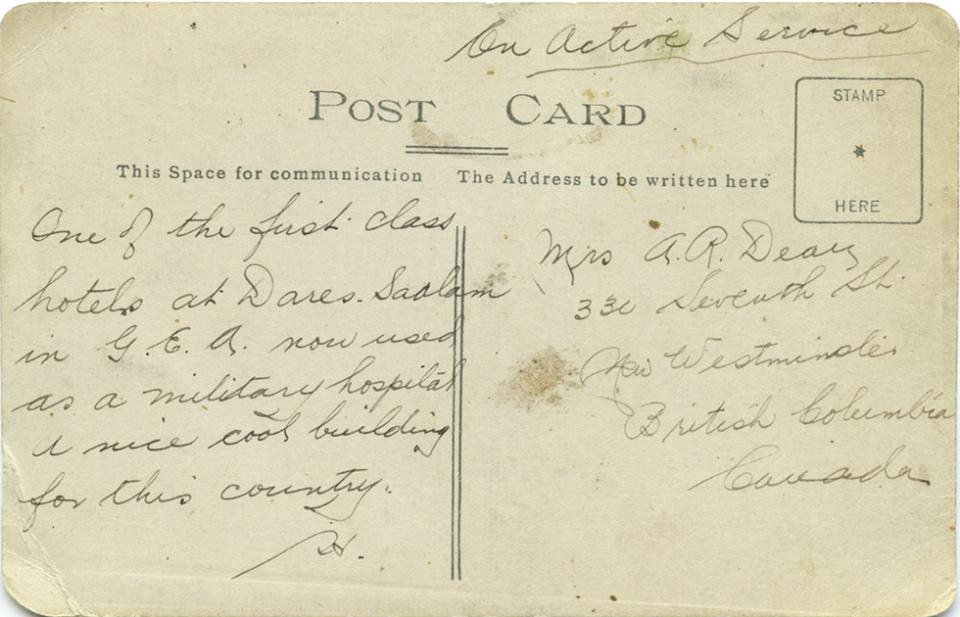 On Active Service
POST CARD
STAMP
HERE
This Space for communication
The Address to be written here
One of the first class
hotels at Dares. Salam
in G. E. A. now used
as a military hospital
a nice cool building
for this country.
H.
Mrs A. R. Deary
330 Seventh St.
New Westminster
British Columbia
Canada